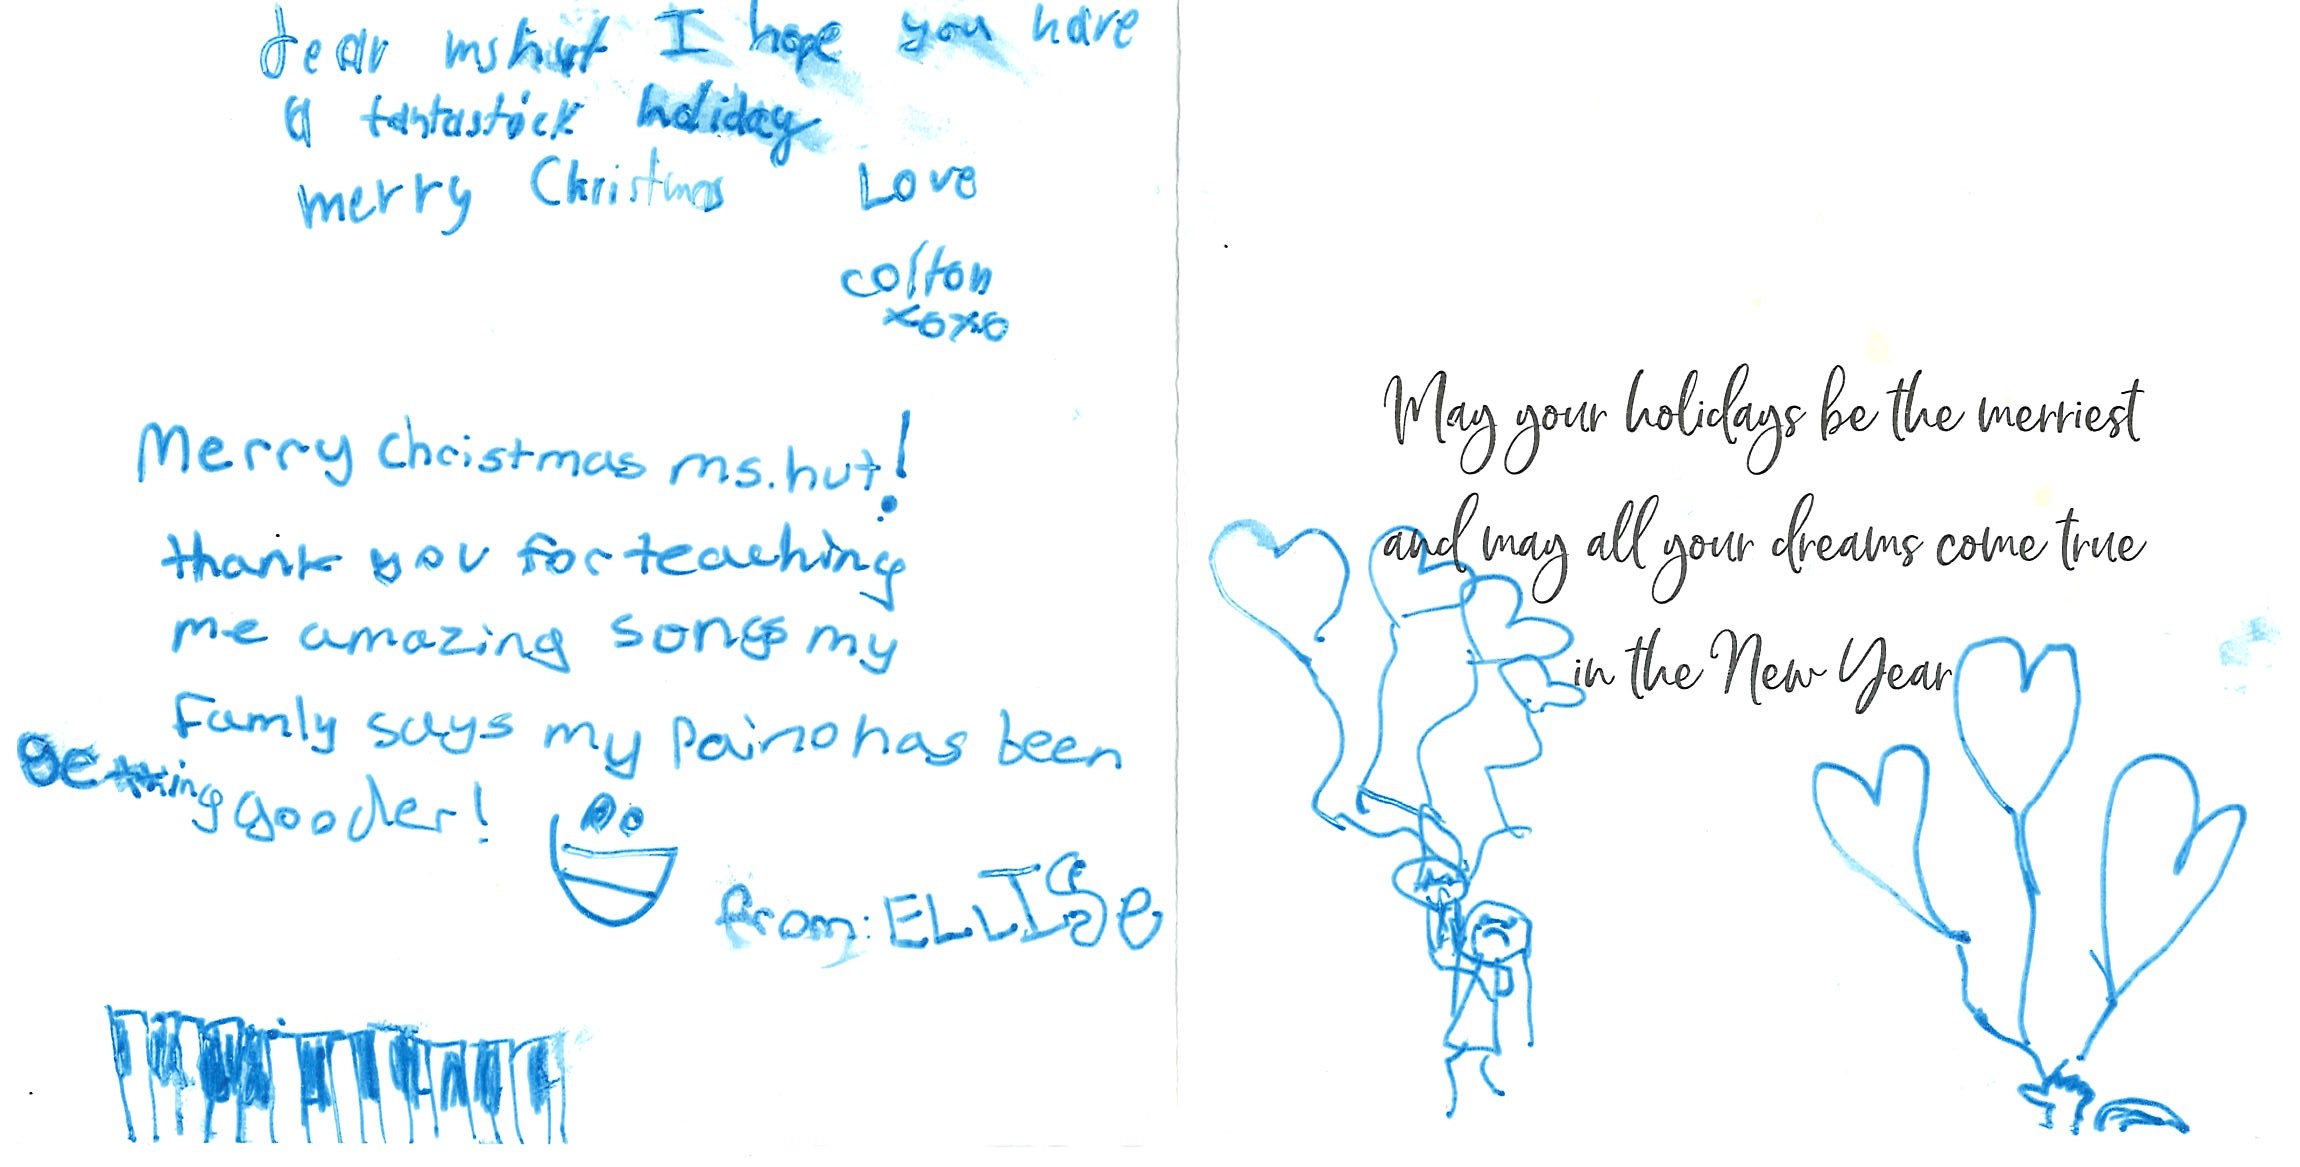 dear ms hut I hope you have
a fantastick holiday
merry Christmas Love
colton
xoxo
Merry christmas ms. hut!
thank you for teaching
me amazing songs my
Famly says my Paino has been
getting gooder!
from: ELLISe
May your holidays be the merriest
and may all your dreams come true
in the New Year